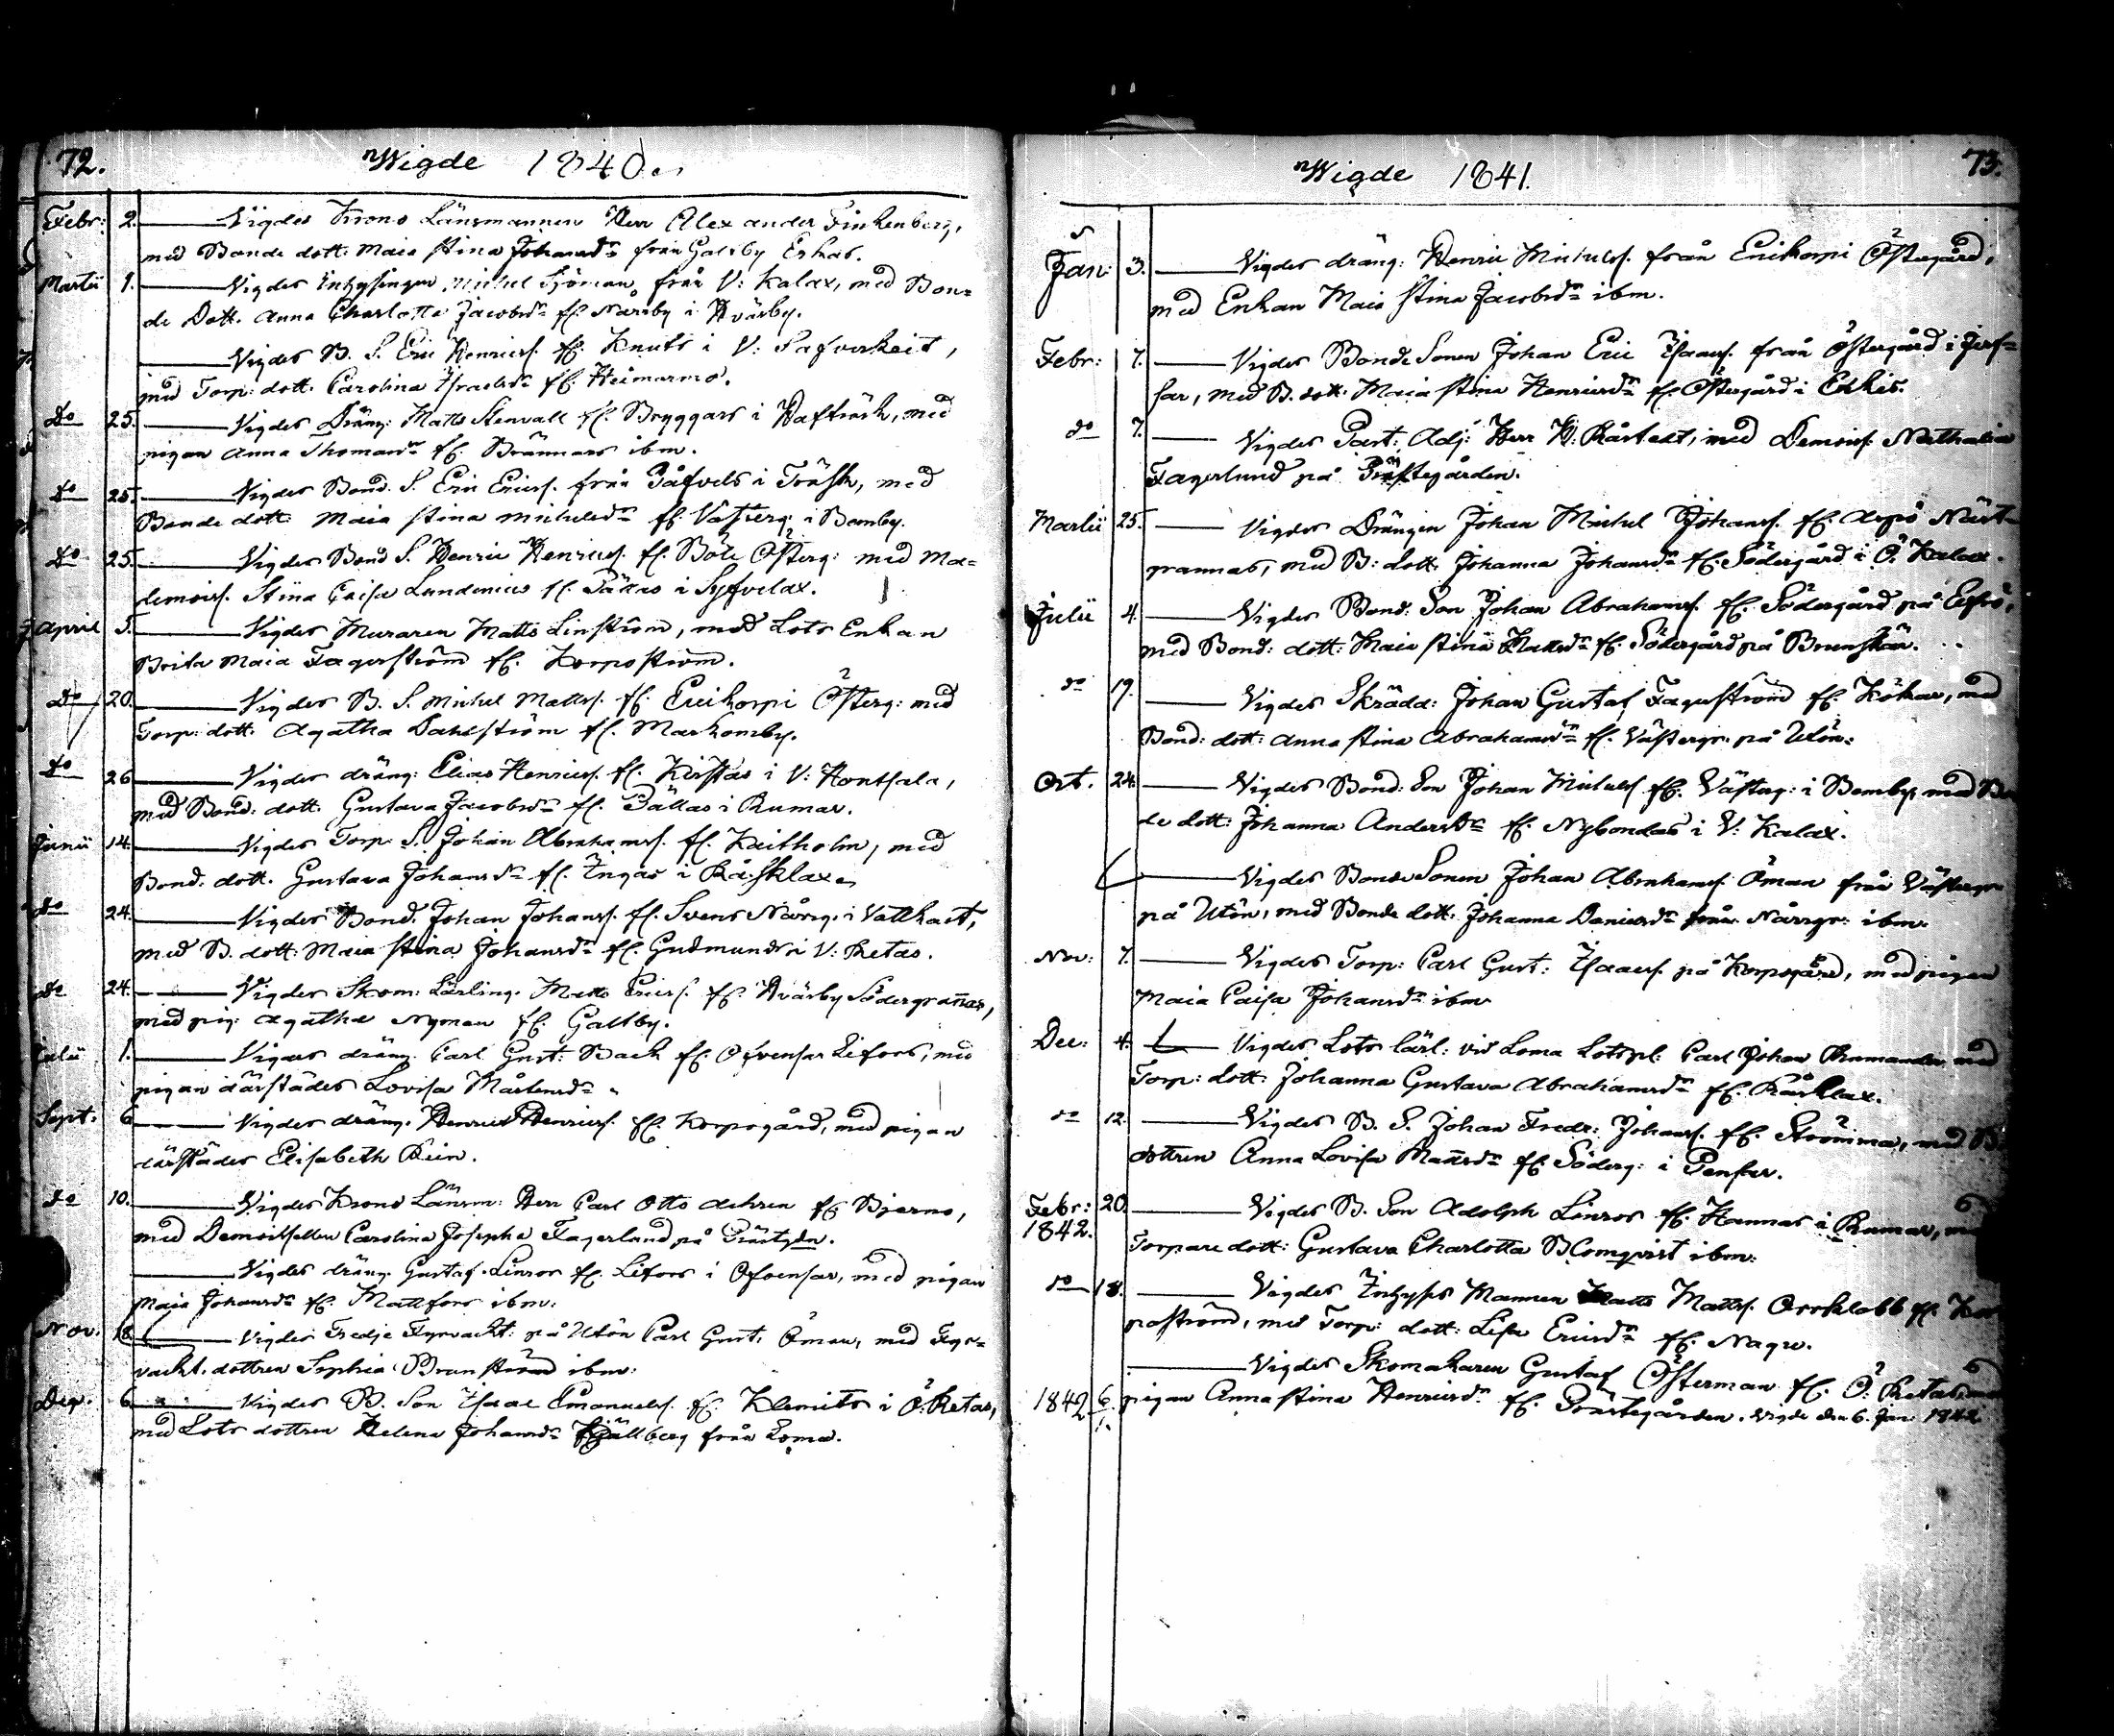 72.
Wigde 1840.
Febr: 2. Vigdes Krono Länsmannen Herr Alexander Finkenberg,
med Bonde dott. Maia Stina Johansdr från Galtby Erkas.
Martii 1. Vigdes Inhysingen Michel Sjöman från V: Kalax, med Bon=
de Dott. Anna Charlotta Jacobsdr fr. Närrby i Avärby.
Vigdes B. S. Eric Henricss. fr. Knuts i V: Safverkeit,
med Torp: dott. Carolina Israelsdr fr. Heimarmo.
Do 25. Vigdes Dräng: Matts Stenvall fr. Bryggars i Hafträsk, med
pigan Anna Thomasdr fr. Brännars ibm.
Do 25. Vigdes Bond. S. Eric Ericss. från Påfvels i Träsk, med
Bonde dott. Maia Stina Michelsdr fr. Västerg: i Bemby.
Do 25. Vigdes Bond S. Henric Henricss. fr. Böle Österg: med Ma=
demois. Stina Caisa Lundenius fr. Pällas i Syfvelax.
April 5. Vigdes Muraren Matts Linström, med Lots Enkan
Brita Maia Fagerström fr. Korpoström.
Do 20. Vigdes B. S. Michel Mattss. fr. Erickorpi Österg: med
Torp: dott. Agatha Dahlström fr. Markomby.
Do 26 Vigdes dräng: Elias Henricss. fr. Kirstas i V: Hontsala,
med Bond: dott. Gustava Jacobsdr fr. Pällas i Rumar.
Junii 14. Vigdes Torp: S. Johan Abrahamss. fr. Kaitholm, med
Bond: dott. Gustava Johansdr fr. Ingas i Råsklax
Do 24. Vigdes Bond. Johan Johanss. fr. Svens Norrg. i Vattkast,
med B. dott: Maia Stina Johansdr fr. Gudmunds i V: Retas.
Do 24. Vigdes Skom: Lärling. Matts Ericss. fr. Avärby Södergrannas,
med pig: Agatha Nyman fr. Galtby.
Julii 1. Vigdes dräng. Carl Gust: Back fr. Ofvensar Lifors, med
pigan därstädes Lovisa Mårtensdr
Sept. 6 Vigdes dräng. Henric Henricss. fr. Korpogård, med pigan
därstädes Elisabeth Rein.
Do 10. Vigdes Krono Länsm: Herr Carl Otto Aehren fr. Bjerno,
med Demoisellen Carolina Josepha Fagerlund på Prästgdn.
Vigdes dräng Gustaf Linros fr. Lifors i Ofvensar, med pigan
Maja Johansdr fr. Mattfors ibm:
Nov. 18. Vigdes Tredje Fyrvackt: på Utön Carl Gust. Öman, med Fyr=
vackt. dottren Sophia Brunström ibm:
Dec. 6 Vigdes B. Son Isaac Emanuelss. fr. Klemits i Ö: Retas,
med Lots dottren Helena Johansdr Fjällberg från Loma.
Wigde 1841.
73.
Jan: 3. Vigdes dräng: Henric Michelss. från Erickorpi Östegård,
med Enkan Maia Stina Jacobsdr ibm.
Febr: 7. Vigdes Bonde Sonen Johan Eric Isaacss. från Östergård i Jerf=
sar, med B. dott. Maia Stina Henricsdr fr. Östergård i Eskis.
do 7. Vigdes Past: Adj: Herr H: Råstedt, med Demois. Nathalia
Fagerlund på Prästegården.
Martii 25. Vigdes Drängen Johan Michel Johanss. fr. Aspö Näst=
grannas, med B: dott. Johanna Johansdr fr. Södergård i Ö. Kalax.
Julii 4. Vigdes Bond: Son Johan Abrahamss. fr. Södergård på Elfsö,
med Bond: dott: Maia Stina Mattsdr fr. Södergård på Brunskär.
do 19. Vigdes Skrädd: Johan Gustaf Fagerström fr. Kökar, med
Bond: dott: Anna Stina Abrahamsdr fr. Västergr. på Utön.
Oct. 24. Vigdes Bond: Son Johan Michelss. fr. Västerg: i Bemby, med Bon
de dott: Johanna Andersdr fr. Nybondas i V: Kalax.
Vigdes Bonde Sonen Johan Abrahamss. Öman från Västergr
på Utön, med Bonde dott. Johanna Danielsdr från Norrgr: ibm.
Nov: 7. Vigdes Torp: Carl Gust: Isaacss. på Korpogård, med pigan
Maia Caisa Johansdr ibm
Dec: 4. Vigdes Lots lärl: vid Loma Lotspl. Carl Johan Rumander med
Torp: dott. Johanna Gustava Abrahamsdr fr. Råsklax.
do 12. Vigdes B. S. Johan Fredr: Johanss. fr. Strömma, med B.
dottren Anna Lovisa Mattsdr fr. Söderg: i Pensar.
Febr: 20. Vigdes B. Son Adolph Linros fr. Hannas i Rumar, med
1842. Torpare dott: Gustava Charlotta Blomqvist ibm:
do 18. Vigdes Inhyss Mannen Matts Mattss. Orrklobb fr. Kor
poström, med Torp: dott: Lisa Ericsdr fr. Nagu.
Vigdes Skomakaren Gustaf Österman fr. Ö: Retas, med
1842 6. pigan Anna Stina Henricsdr fr. Prästegården. Vigde den 6. Jan 1842